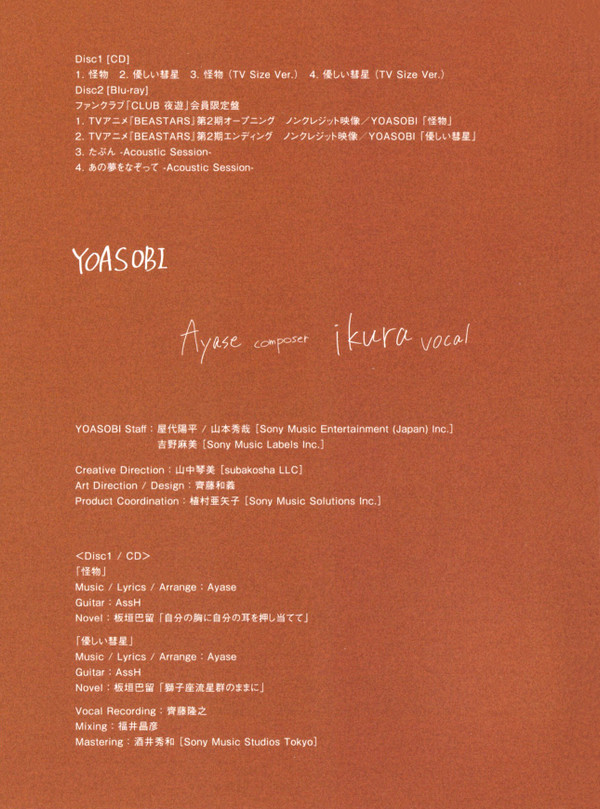 Disc1 [CD]
1. 怪物　2. 優しい彗星　3. 怪物 (TV Size Ver.)　4. 優しい彗星 (TV Size Ver.)
Disc2 [Blu-ray]
ファンクラブ「CLUB 夜遊」会員限定盤
1. TVアニメ『BEASTARS』第2期オープニング　ノンクレジット映像／YOASOBI 「怪物」
2. TVアニメ『BEASTARS』第2期エンディング　ノンクレジット映像／YOASOBI 「優しい彗星」
3. たぶん -Acoustic Session-
4. あの夢をなぞって -Acoustic Session-
YOASOBI
Ayase composer ikura vocal
YOASOBI Staff : 屋代陽平 / 山本秀哉 [Sony Music Entertainment (Japan) Inc.]
吉野麻美 [Sony Music Labels Inc.]
Creative Direction : 山中琴美 [subakosha LLC]
Art Direction / Design : 齊藤和義
Product Coordination : 植村亜矢子 [Sony Music Solutions Inc.]
＜Disc1 / CD＞
「怪物」
Music / Lyrics / Arrange : Ayase
Guitar : AssH
Novel : 板垣巴留 「自分の胸に自分の耳を押し当てて」
「優しい彗星」
Music / Lyrics / Arrange : Ayase
Guitar : AssH
Novel : 板垣巴留 「獅子座流星群のままに」
Vocal Recording : 齊藤隆之
Mixing : 福井昌彦
Mastering : 酒井秀和 [Sony Music Studios Tokyo]